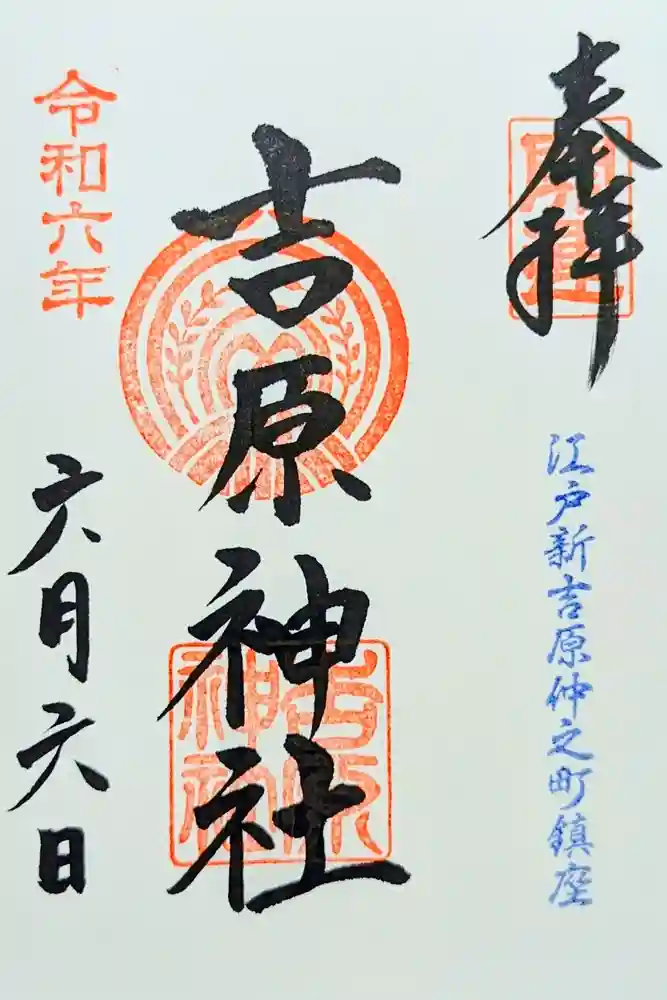 奉拝
開運
江戸新吉原仲之町鎮座
吉原神社
吉原
神社
令和六年
六月六日